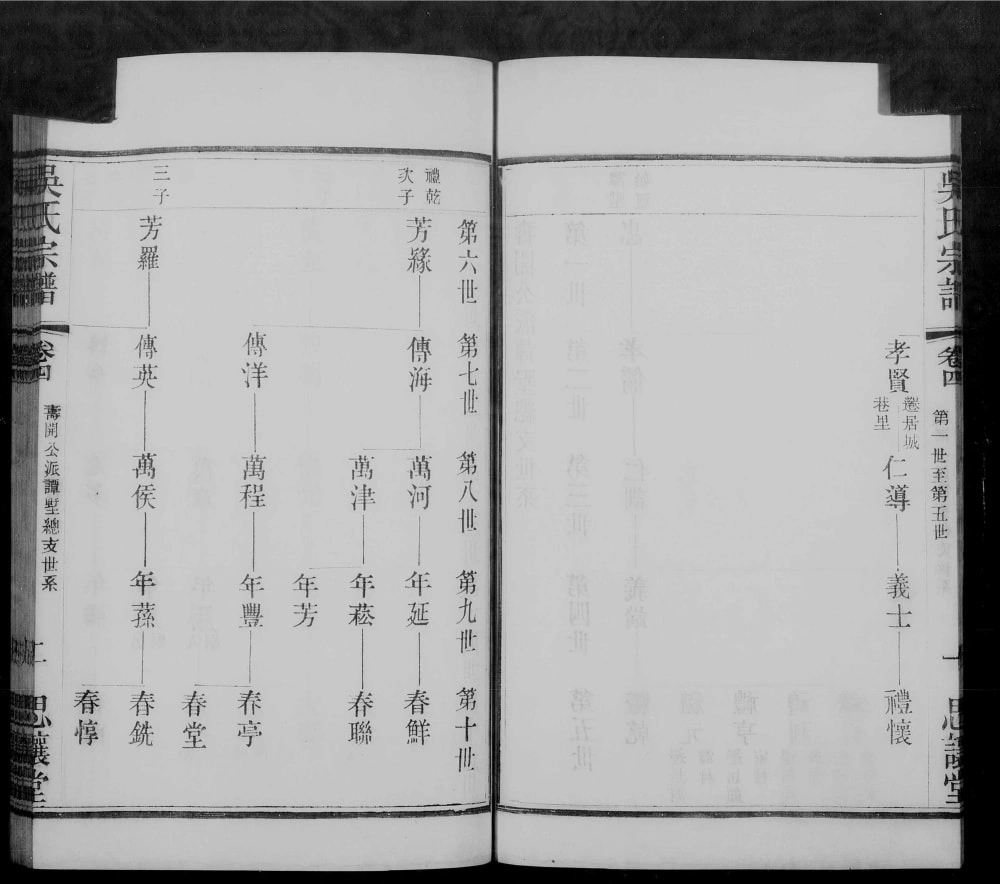 吳氏宗譜
卷四
第一世至第五世
一
思讓堂
孝賢
遷居城
巷里
仁導
義士
禮懷
第六世
第七世
第八世
第九世
第十世
禮乾
次子
芳緣
傳海
萬河
年延
春鮮
萬津
年菘
春聯
年芳
傳洋
萬程
年豐
春亭
春堂
三子
芳羅
傳英
萬侯
年蓀
春銑
春惇
吳氏宗譜
卷四
壽開公派譚墅總支世系
二
思讓堂